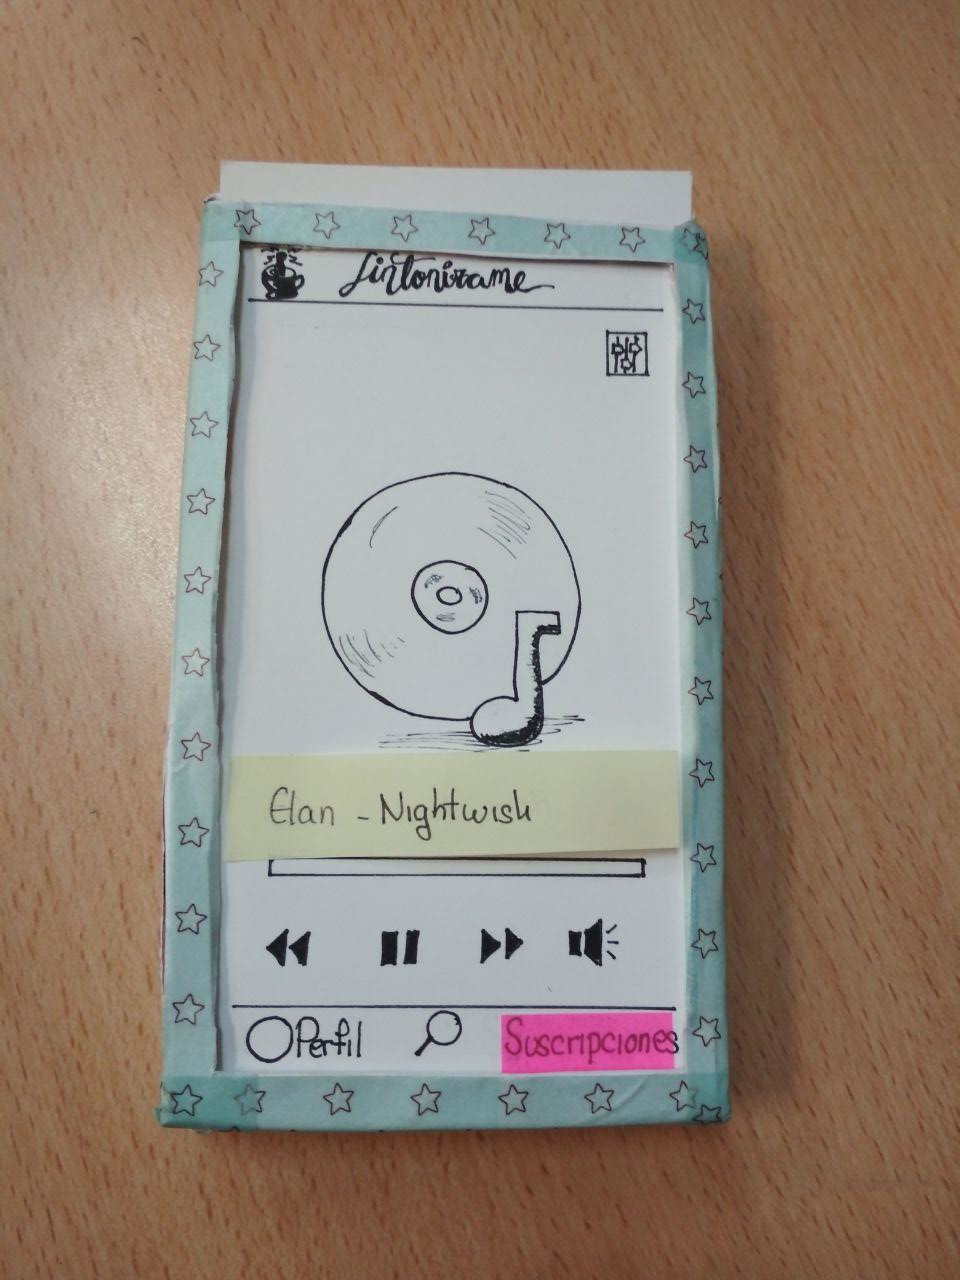 Sintonizame
Elan - Nightwish
Perfil
Suscripciones